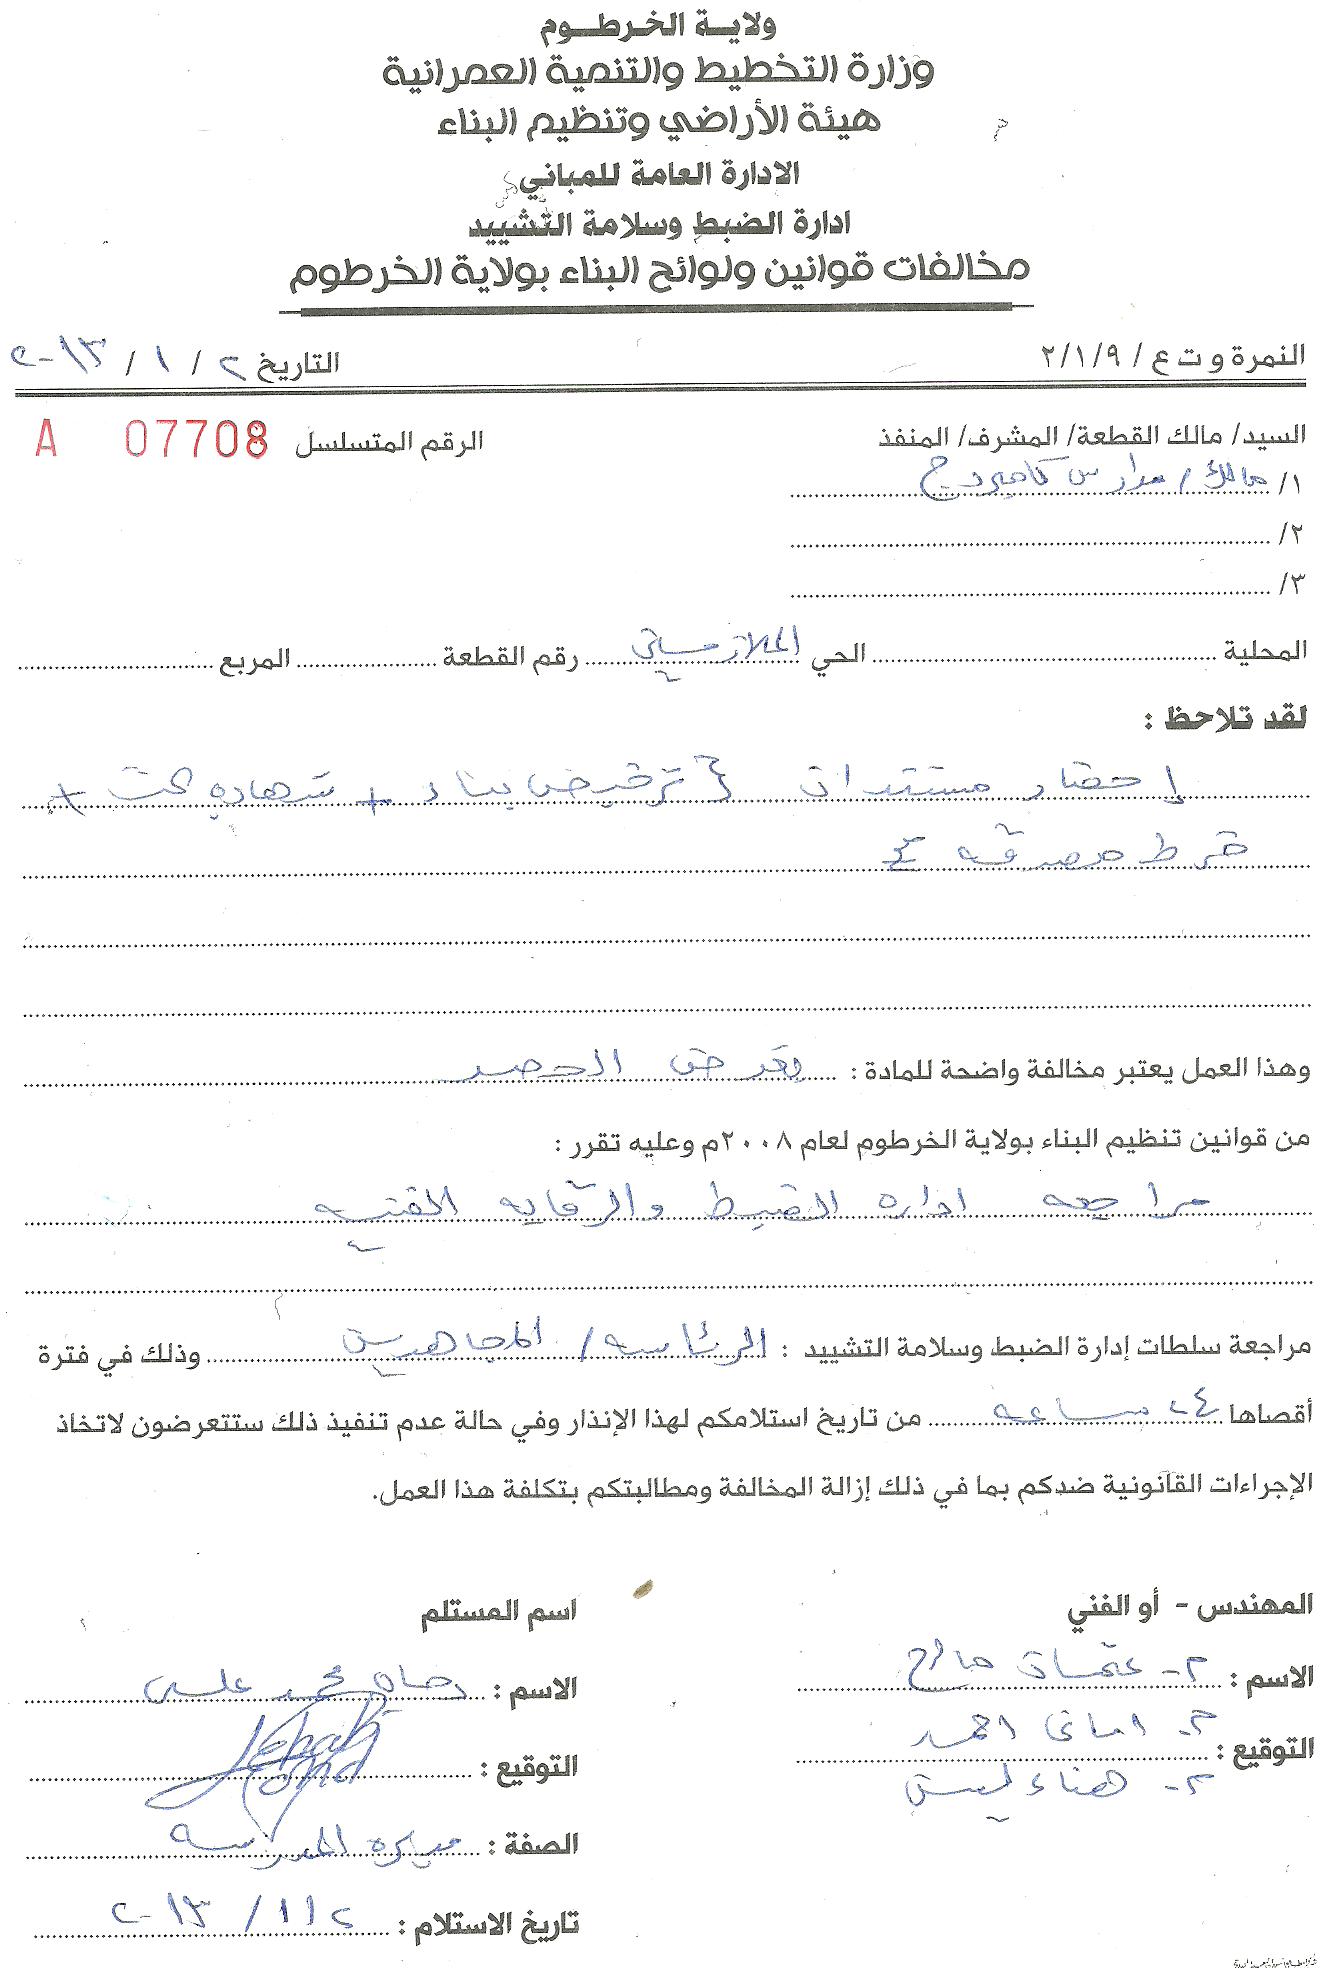 ولاية الخرطوم
وزارة التخطيط والتنمية العمرانية
هيئة الأراضي وتنظيم البناء
الادارة العامة للمباني
ادارة الضبط وسلامة التشييد
مخالفات قوانين ولوائح البناء بولاية الخرطوم
النمرة و ت ع / ٢/١/٩ التاريخ ٢ / ١ / ٢٠١٣
السيد/ مالك القطعة/ المشرف/ المنفذ الرقم المتسلسل 07708 A
١/ مالك / مدارس كامبردج
٢/
٣/
المحلية الحي الملازمين رقم القطعة المربع
لقد تلاحظ :
إحضار مستندات { ترخيص بناء + شهادة بحث +
خرط مصدقه }
وهذا العمل يعتبر مخالفة واضحة للمادة : بغرض الحصر
من قوانين تنظيم البناء بولاية الخرطوم لعام ٢٠٠٨م وعليه تقرر :
مراجعه اداره الضبط والرقابه الفنيه
مراجعة سلطات إدارة الضبط وسلامة التشييد : الرئاسه / المجاهدين وذلك في فترة
أقصاها ٢٤ ساعه من تاريخ استلامكم لهذا الإنذار وفي حالة عدم تنفيذ ذلك ستتعرضون لاتخاذ
الإجراءات القانونية ضدكم بما في ذلك إزالة المخالفة ومطالبتكم بتكلفة هذا العمل.
المهندس - أو الفني اسم المستلم
الاسم : م- صالح الاسم : محمد علي
التوقيع : م- اماني احمد التوقيع :
م- هناء
الصفة : مديره المدرسه
تاريخ الاستلام : ٢ / ١ / ٢٠١٣